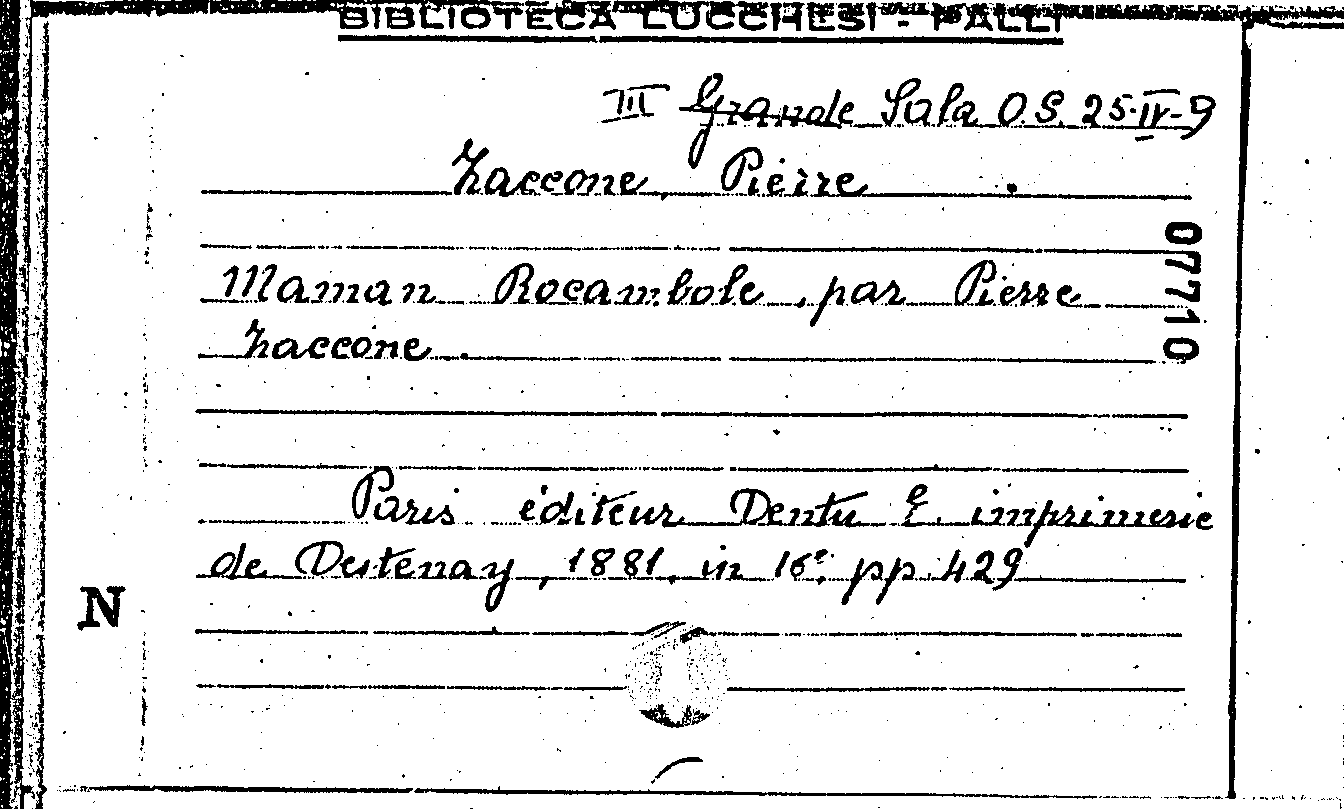 BIBLIOTECA LUCCHESI - PALLI
III Grande Sala O.S. 25-IV-9
Zaccone, Pierre
07710
Maman Rocambole, par Pierre
Zaccone.
Paris éditeur Dentu E. imprimerie
de Destenay, 1881. in 16º. pp. 429
N